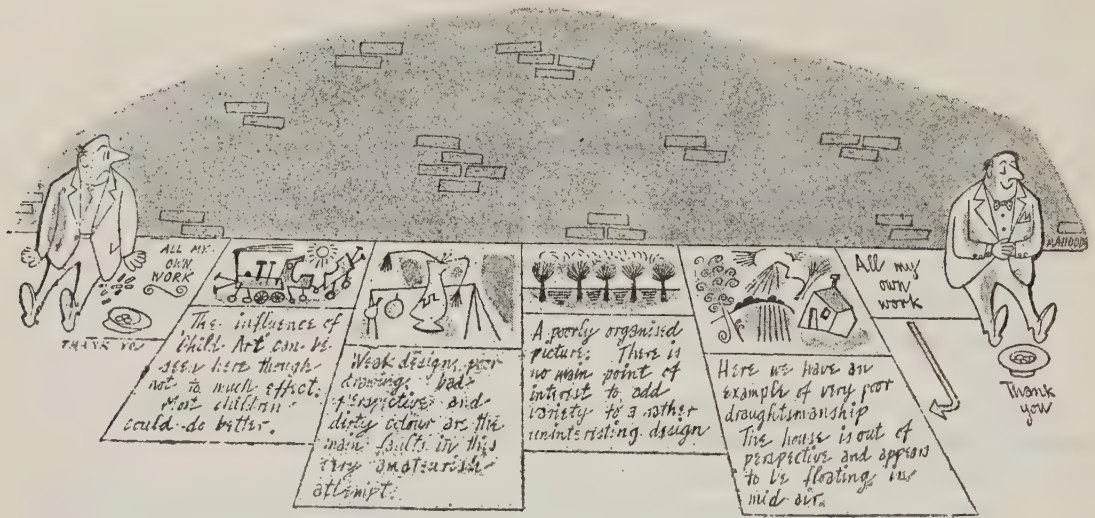 ALL MY
OWN
WORK
THANK YOU
The influence of
Child Art can be
seen here though
not to much effect.
Most children
could do better.
Weak design, poor
drawing, bad
perspective and
dirty colour are the
main faults in this
very amateurish
attempt.
A poorly organised
picture. There is
no main point of
interest to add
variety to a rather
uninteresting design
Here we have an
example of very poor
draughtsmanship
The house is out of
perspective and appears
to be floating in
mid air.
All my
own
work
Thank
you